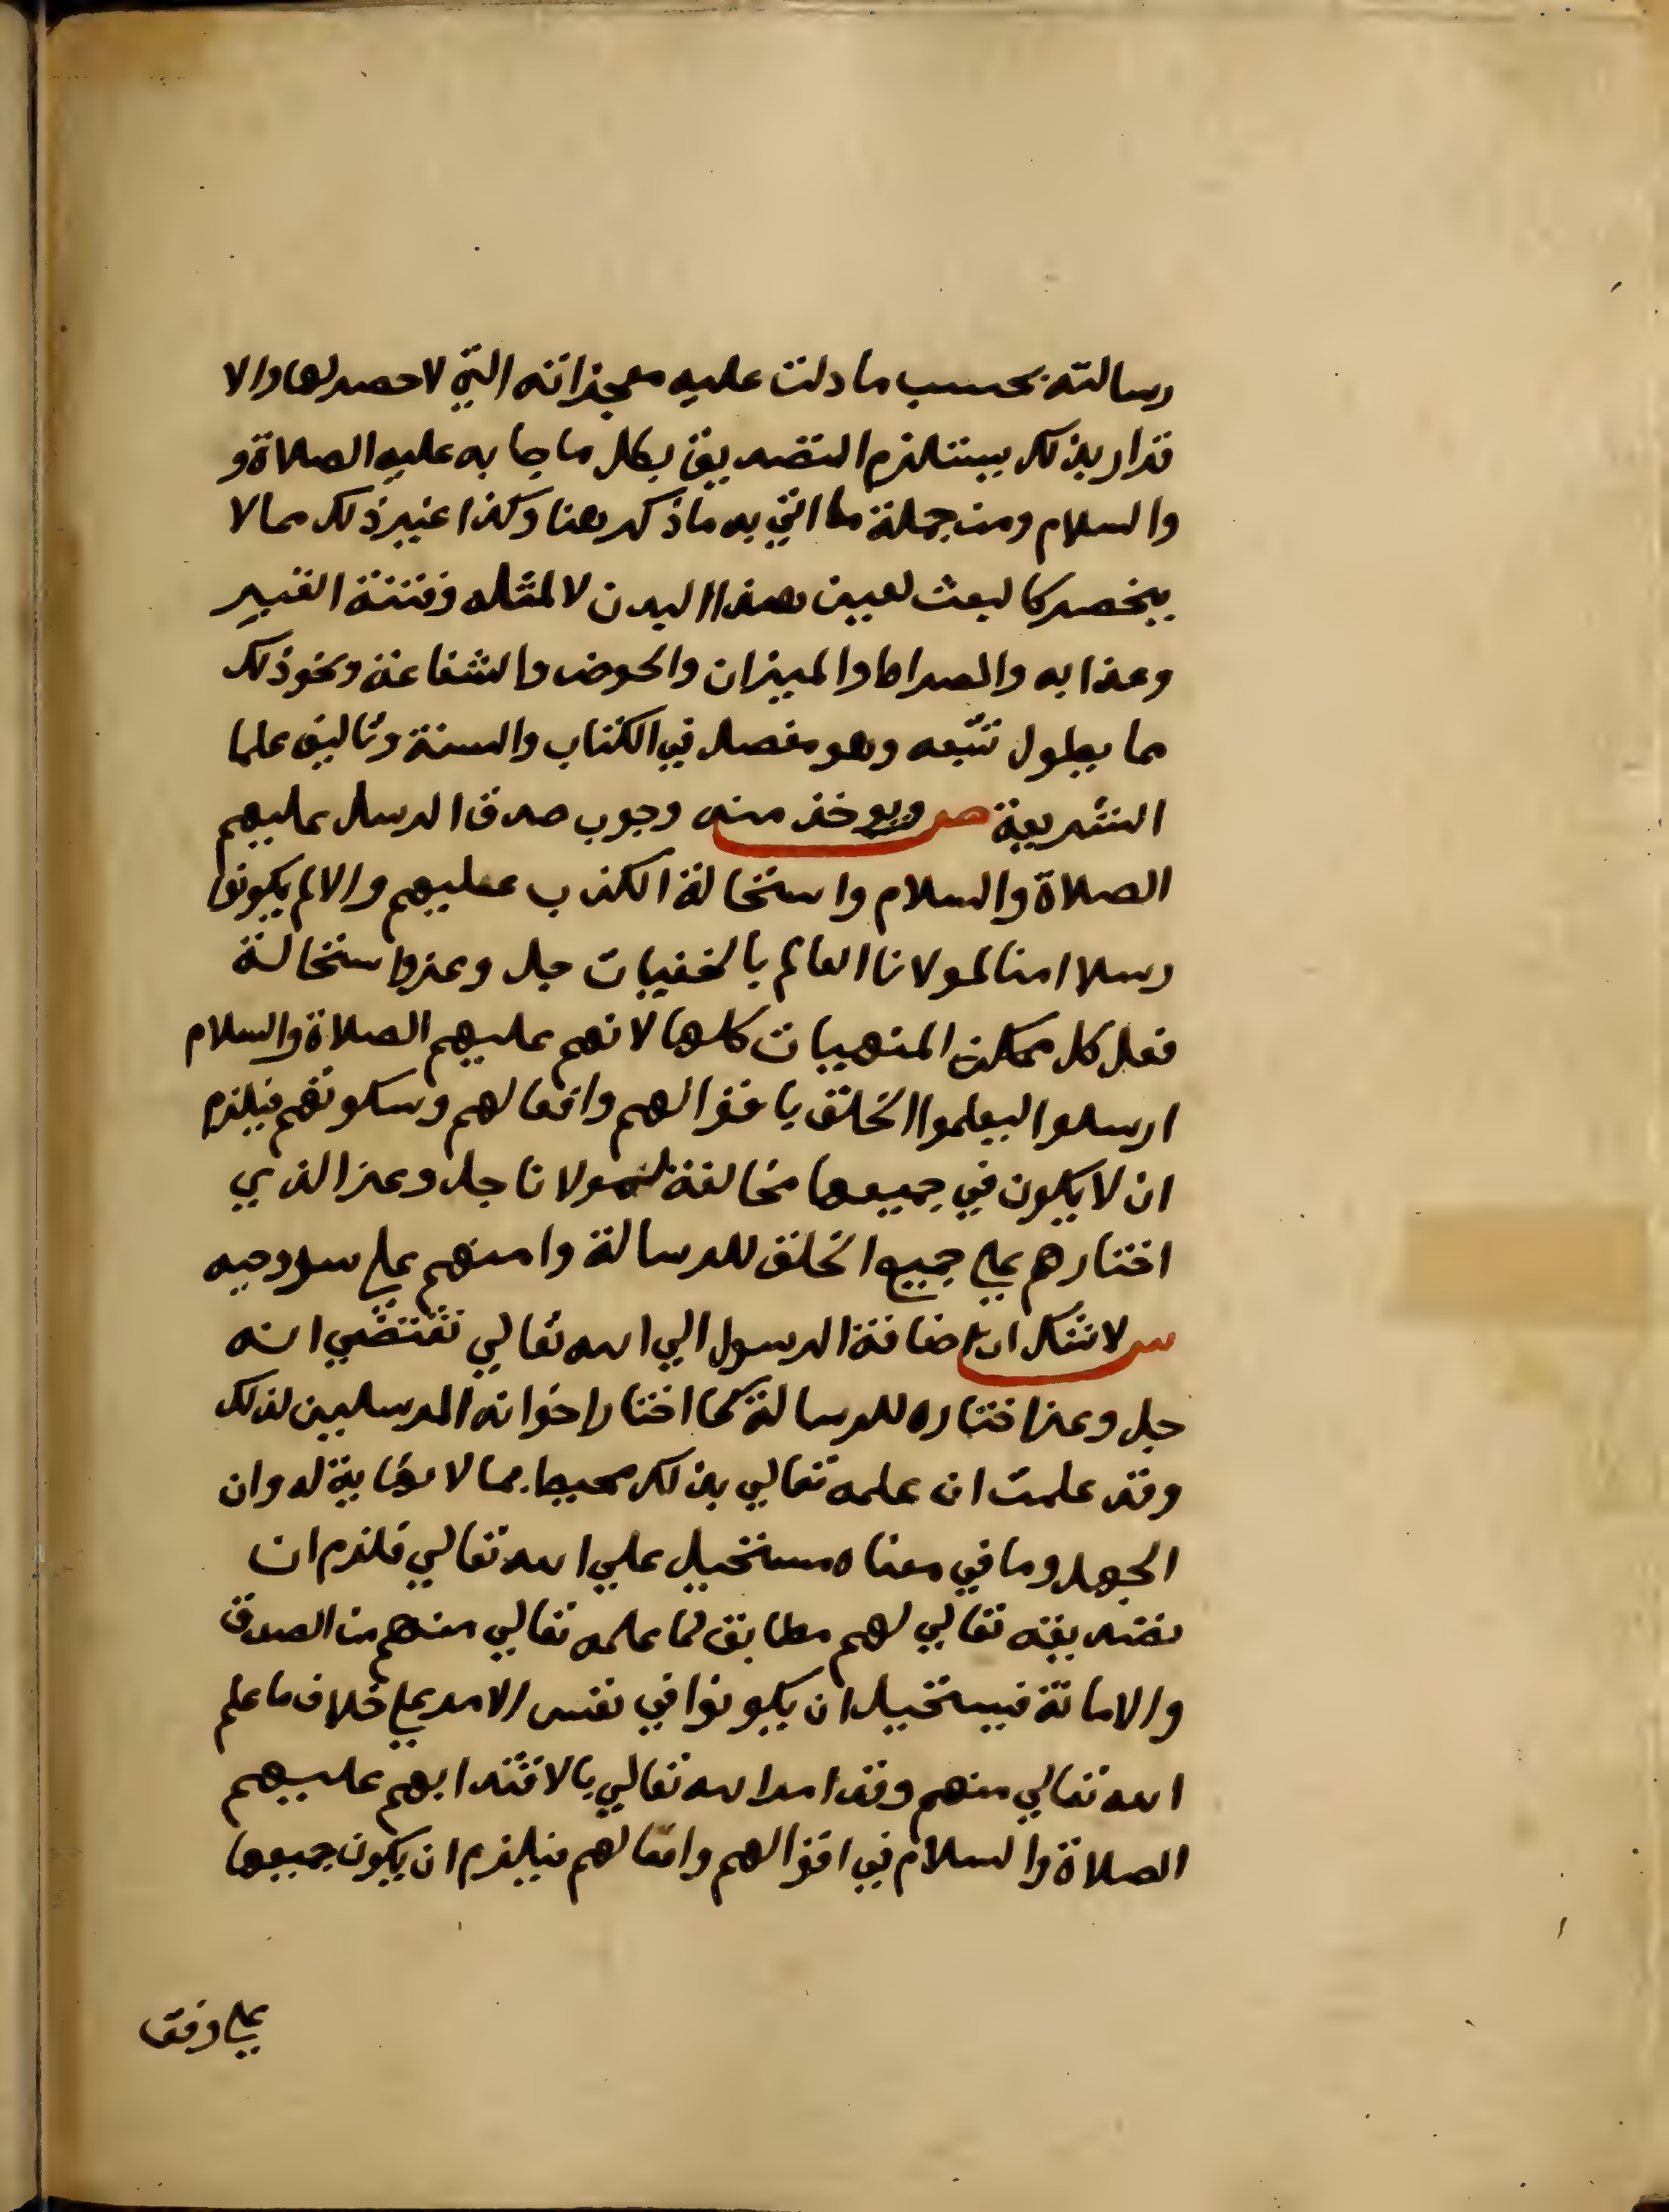 رسالته بحسب ما دلت عليه معجزاته التي لا حصر لها والا
قرار بذلك يستلزم التصديق بكل ما جا به عليه الصلاة و
والسلام ومن جملة ما اتي به ما ذكر هنا وكذا غير ذلك مما لا
ينحصر كالبعث لعين هذا البدن لا لمثله وفتنة القبر
وعذابه والصراط والميزان والحوض والشفاعة ونحو ذلك
مما يطول تتبعه وهو مفصل في الكتاب والسنة وتاليف علما
الشريعة ص ويوخذ منه وجوب صدق الرسل عليهم
الصلاة والسلام واستحالة الكذب عليهم والا لم يكونوا
رسلا امنا لمولانا العالم بالخفيات جل وعز واستحالة
فعل كل ممكن المنهيات كلها لانهم عليهم الصلاة والسلام
ارسلوا ليعلموا الخلق باقوالهم وافعالهم وسكوتهم فيلزم
ان لا يكون في جميعها مخالفة لمولانا جل وعز الذي
اختارهم علي جميع الخلق للرسالة وامنهم علي سر وحيه
س لا شك ان اضافة الرسول الي الله تعالي تقتضي انه
جل وعز اختاره للرسالة كما اختار اخوانه المرسلين لذلك
وقد علمت ان علمه تعالي بذلك محيط بما لا نهاية له وان
الجهل وما في معناه مستحيل علي الله تعالي فلزم ان
تصديقه تعالي لهم مطابق لما علمه تعالي منهم من الصدق
والامانة فيستحيل ان يكونوا في نفس الامر علي خلاف ما علم
الله تعالي منهم وقد امر الله تعالي بالاقتدا بهم عليهم
الصلاة والسلام في اقوالهم وافعالهم فيلزم ان يكون جميعها
علي وفق